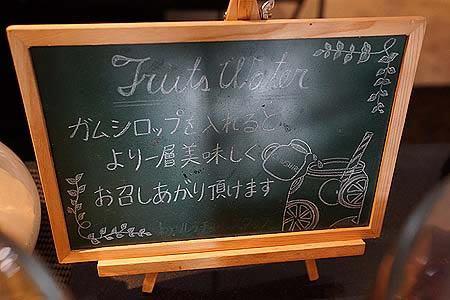 Fruts Water
ガムシロップを入れると、
より一層美味しく
お召しあがり頂けます